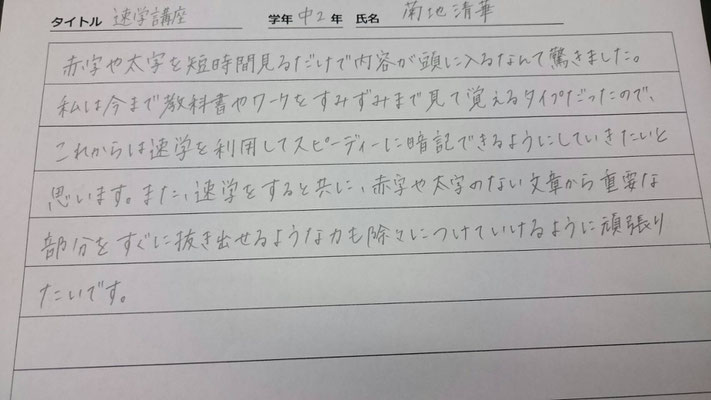 タイトル 速学講座 学年 中2年 氏名 菊地清華
赤字や太字を短時間見るだけで内容が頭に入るなんて驚きました。
私は今まで教科書やワークをすみずみまで見て覚えるタイプだったので、
これからは速学を利用してスピーディーに暗記できるようにしていきたいと
思います。また、速学をすると共に、赤字や太字のない文章から重要な
部分をすぐに抜き出せるような力も除々につけていけるように頑張り
たいです。